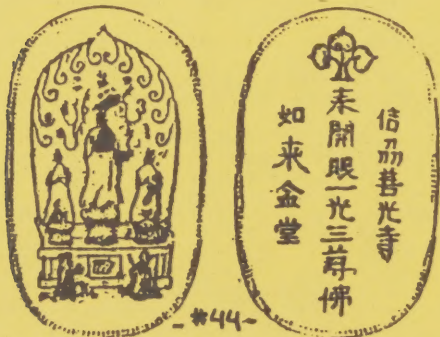 信刕善光寺
奉開眼一光三尊佛
如来金堂
-#44-